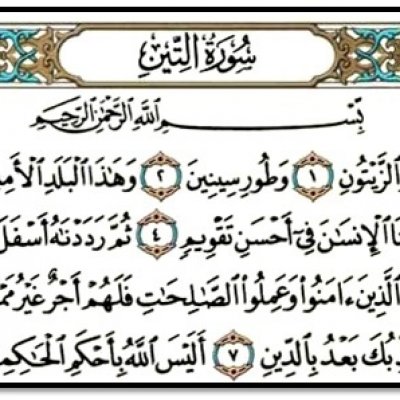 سُورَةُ التِّينِ
بِسْمِ اللَّهِ الرَّحْمَٰنِ الرَّحِيمِ
الزَّيْتُونِ ١ وَطُورِ سِينِينَ ٢ وَهَٰذَا الْبَلَدِ الْأَمِ
نَا الْإِنسَانَ فِي أَحْسَنِ تَقْوِيمٍ ٤ ثُمَّ رَدَدْنَاهُ أَسْفَلَ
الَّذِينَ ءَامَنُوا وَعَمِلُوا الصَّالِحَاتِ فَلَهُمْ أَجْرٌ غَيْرُ مَمْ
بُكَ بَعْدُ بِالدِّينِ ٧ أَلَيْسَ اللَّهُ بِأَحْكَمِ الْحَاكِمِ